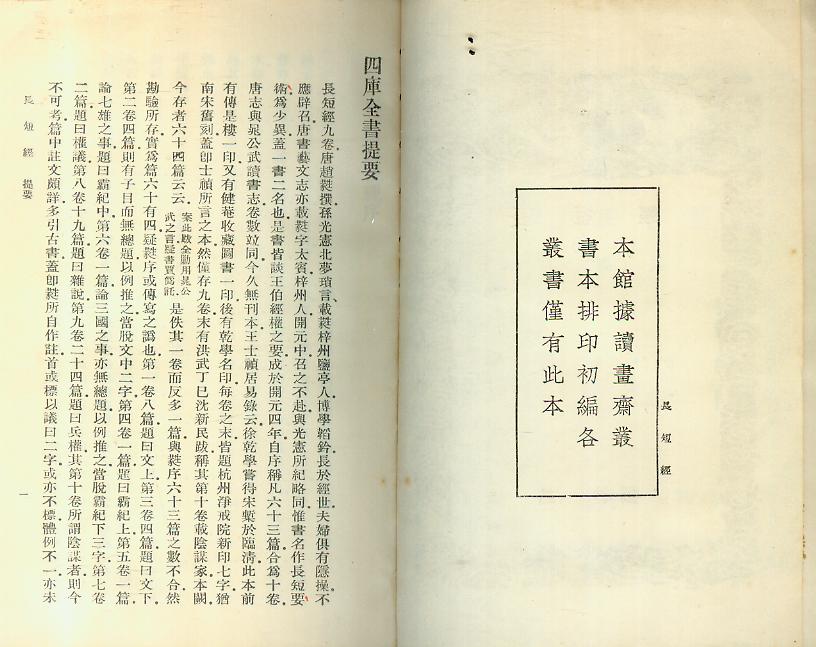 長短經
本館據讀畫齋叢
書本排印初編各
叢書僅有此本
四庫全書提要
長短經九卷唐趙蕤撰孫光憲北夢瑣言載蕤梓州鹽亭人博學韜鈐長於經世夫婦俱有隱操不
應辟召唐書藝文志亦載蕤字太賓梓州人開元中召之不赴與光憲所紀略同惟書名作長短要
術爲少異蓋一書二名也是書皆談王伯經權之要成於開元四年自序稱凡六十三篇合爲十卷
唐志與晁公武讀書志卷數竝同今久無刊本王士禎居易錄云徐乾學嘗得宋槧於臨淸此本前
有傳是樓一印又有健菴收藏圖書一印後有乾學名印每卷之末皆題杭州淨戒院新印七字猶
南宋舊刻蓋卽士禎所言之本然僅存九卷末有洪武丁巳沈新民跋稱其第十卷載陰謀家本闕
今存者六十四篇云云案此跋全勦用晁公武之言疑書賈僞託是佚其一卷而反多一篇與蕤序六十三篇之數不合然
勘驗所存實爲篇六十有四疑蕤序或傳寫之譌也第一卷八篇題曰文上第三卷四篇題曰文下
第二卷四篇則有子目而無總題以例推之當脫文中二字第四卷一篇題曰霸紀上第五卷一篇
論七雄之事題曰霸紀中第六卷一篇論三國之事亦無總題以例推之當脫霸紀下三字第七卷
二篇題曰權議第八卷十九篇題曰雜說第九卷二十四篇題曰兵權其第十卷所謂陰謀者則今
不可考篇中註文頗詳多引古書蓋卽蕤所自作註首或標以議曰二字或亦不標體例不一亦未
長短經 提要 一